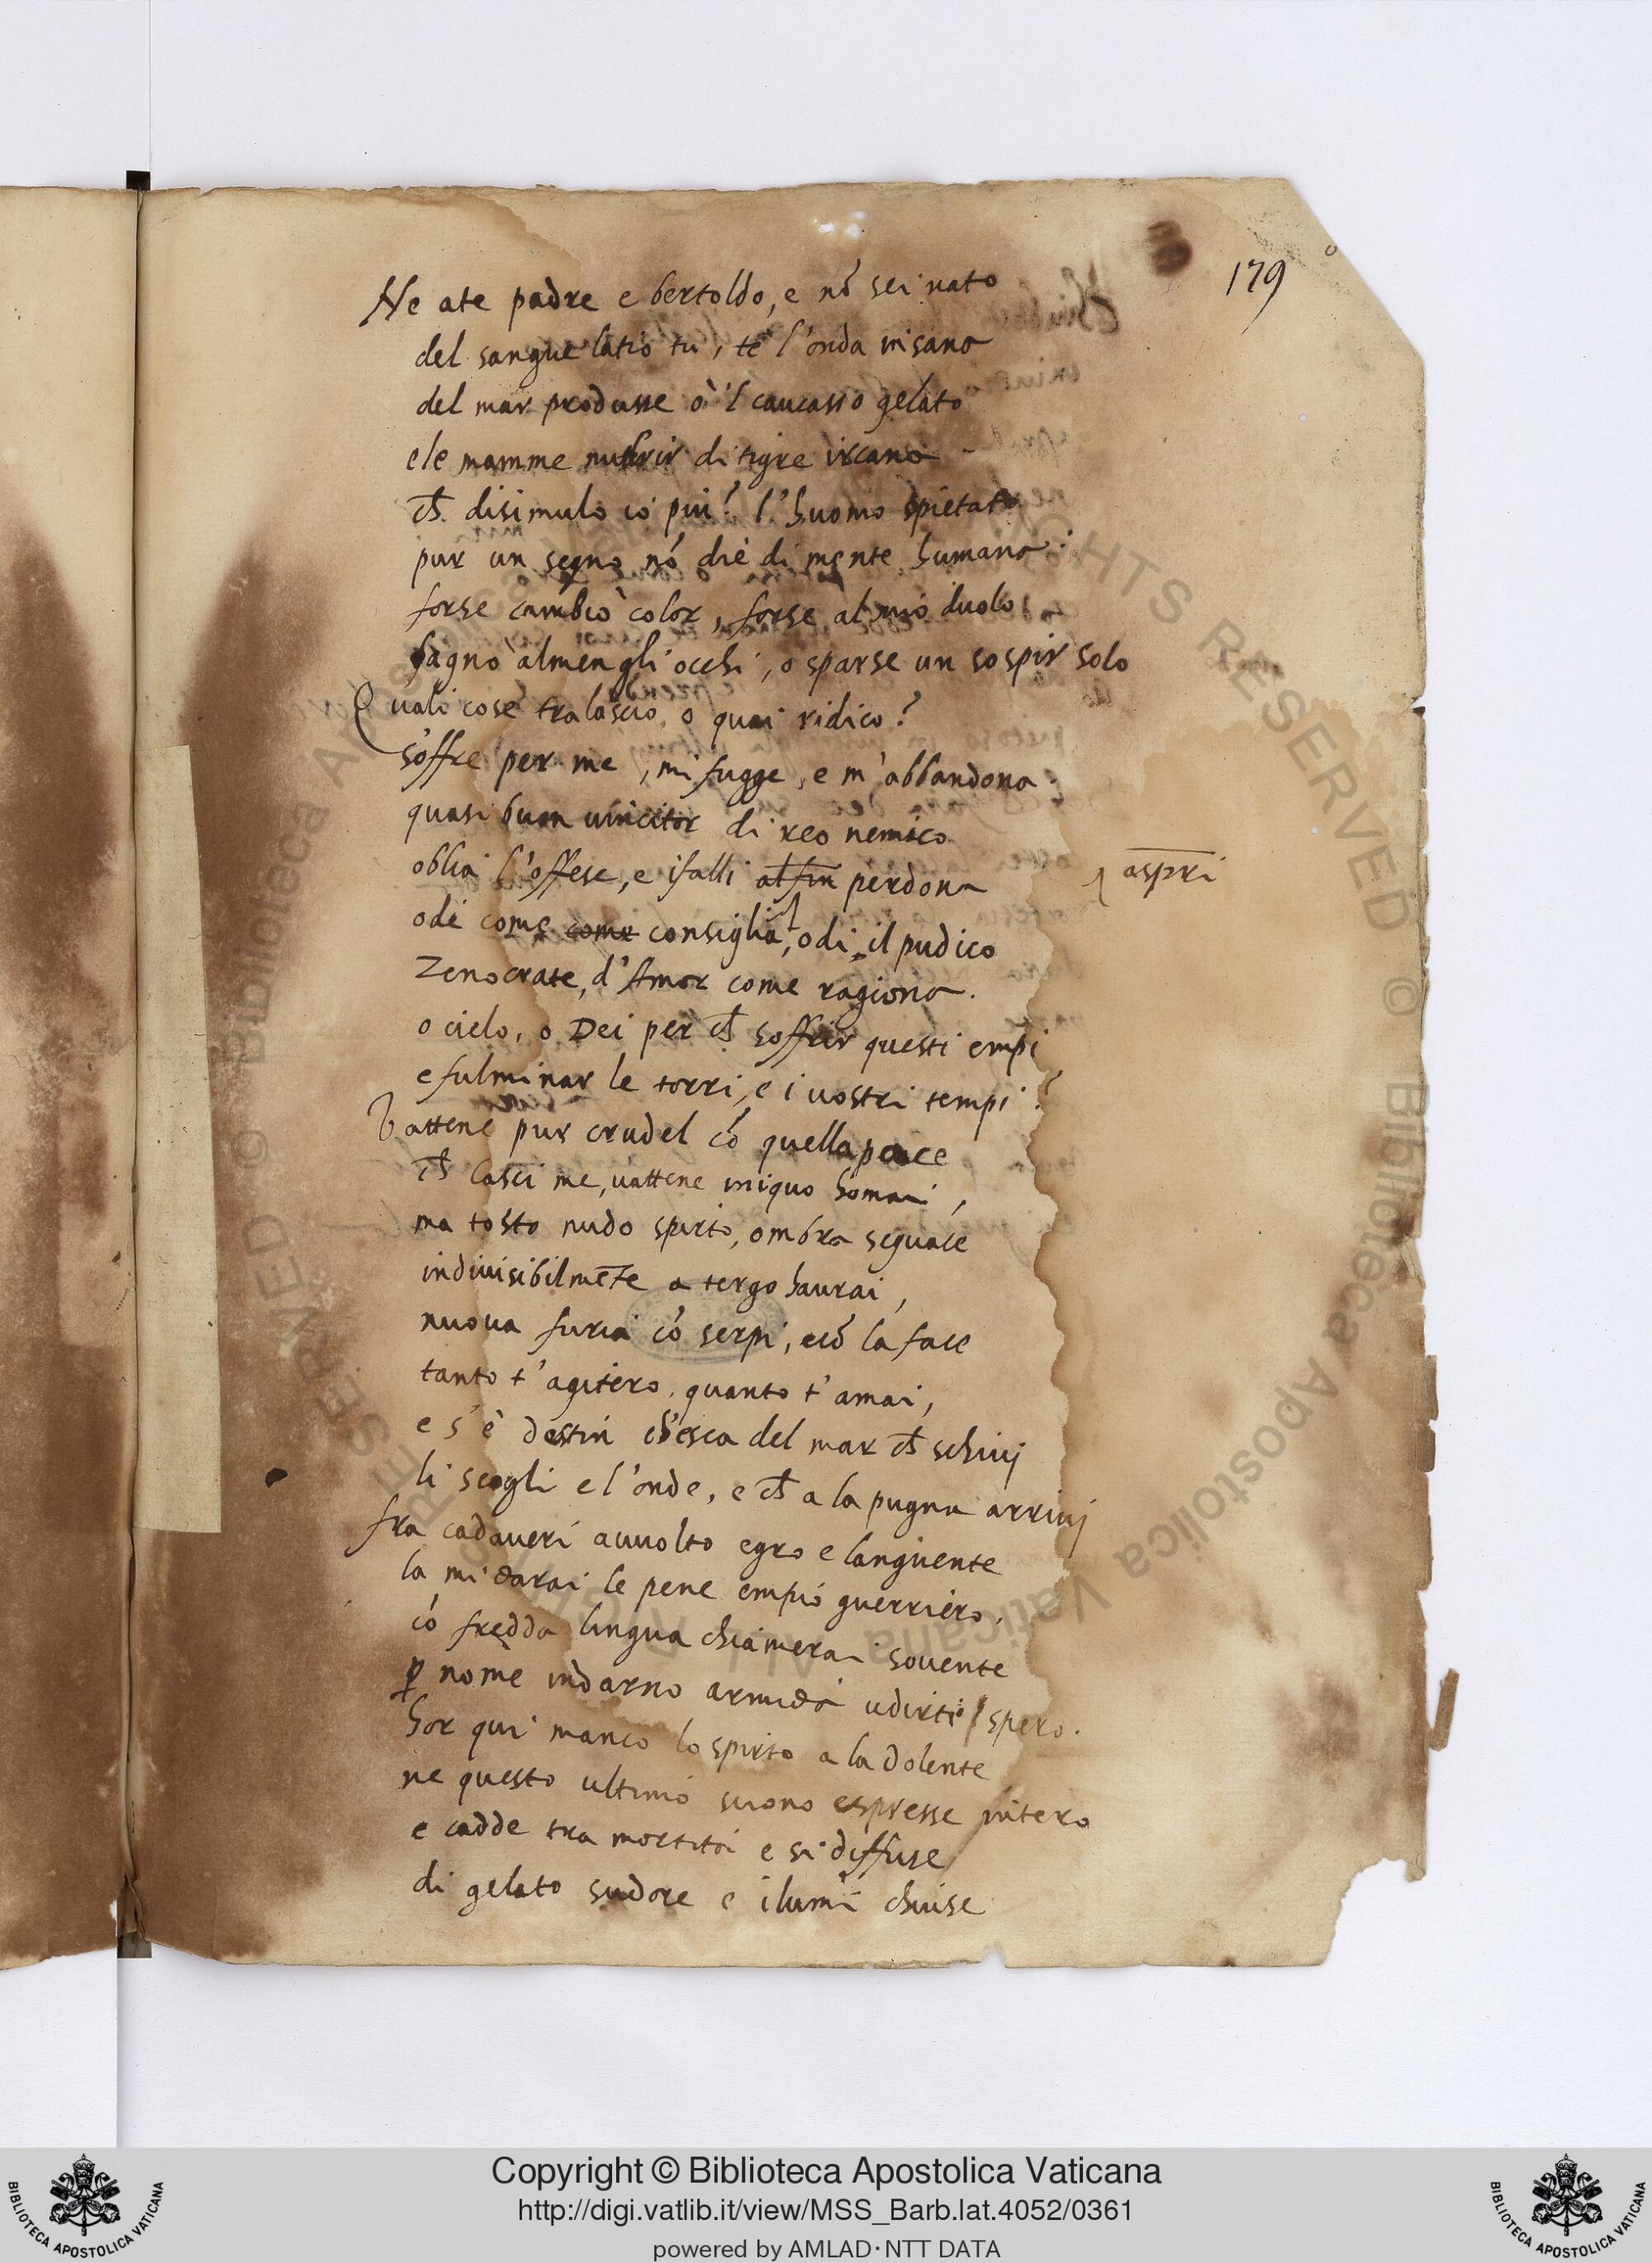 179
Ne ate padre e bertoldo, e nõ sei nato
del sangue latio tu, te l'onda insana
del mar produsse o'l caucasso gelato
e le mamme nutrir di tigre ircana
ch̃ disimulo io piu? l'huomo spietato
pur un segno nõ diè di mente humana:
forse cambiò color, forse al mio duolo
bagnò almen gli occhi, o sparse un sospir solo
Quali cose tralascio, o quai ridico?
s'offre per me, mi fugge, e m'abbandona.
quasi buon vincitor di reo nemico
oblia l'offese, e i falli perdona
aspri
odi come consiglia, odi il pudico
Zenocrate, d'Amor come ragiona.
o cielo, o Dei per ch̃ soffrir questi empi
e fulminar le torri, e i vostri tempi?
Vattene pur crudel cõ quella pace
ch̃ lasci me, vattene iniquo homai,
ma tosto nudo spirto, ombra seguace
indivisibilmẽte a tergo haurai,
nuova furia cõ serpi, e cõ la face
tanto t'agitero, quanto t'amai,
e s'è destin ch'esca del mar ch̃ schivj
li scogli e l'onde, e ch̃ a la pugna arrivj
fra cadaveri avvolto egro e languente
la mi darai le pene empio guerriero.
cõ fredda lingua chiamerai sovente
ꝑ nome indarno armida udirti spero.
hor qui manco lo spirto a la dolente
ne questo ultimo suono espresse intero
e cadde tra mortita e si diffuse
di gelato sudore e i lumi chiuse
Copyright © Biblioteca Apostolica Vaticana
http://digi.vatlib.it/view/MSS_Barb.lat.4052/0361
powered by AMLAD·NTT DATA
BIBLIOTECA APOSTOLICA VATICANA
BIBLIOTECA APOSTOLICA VATICANA